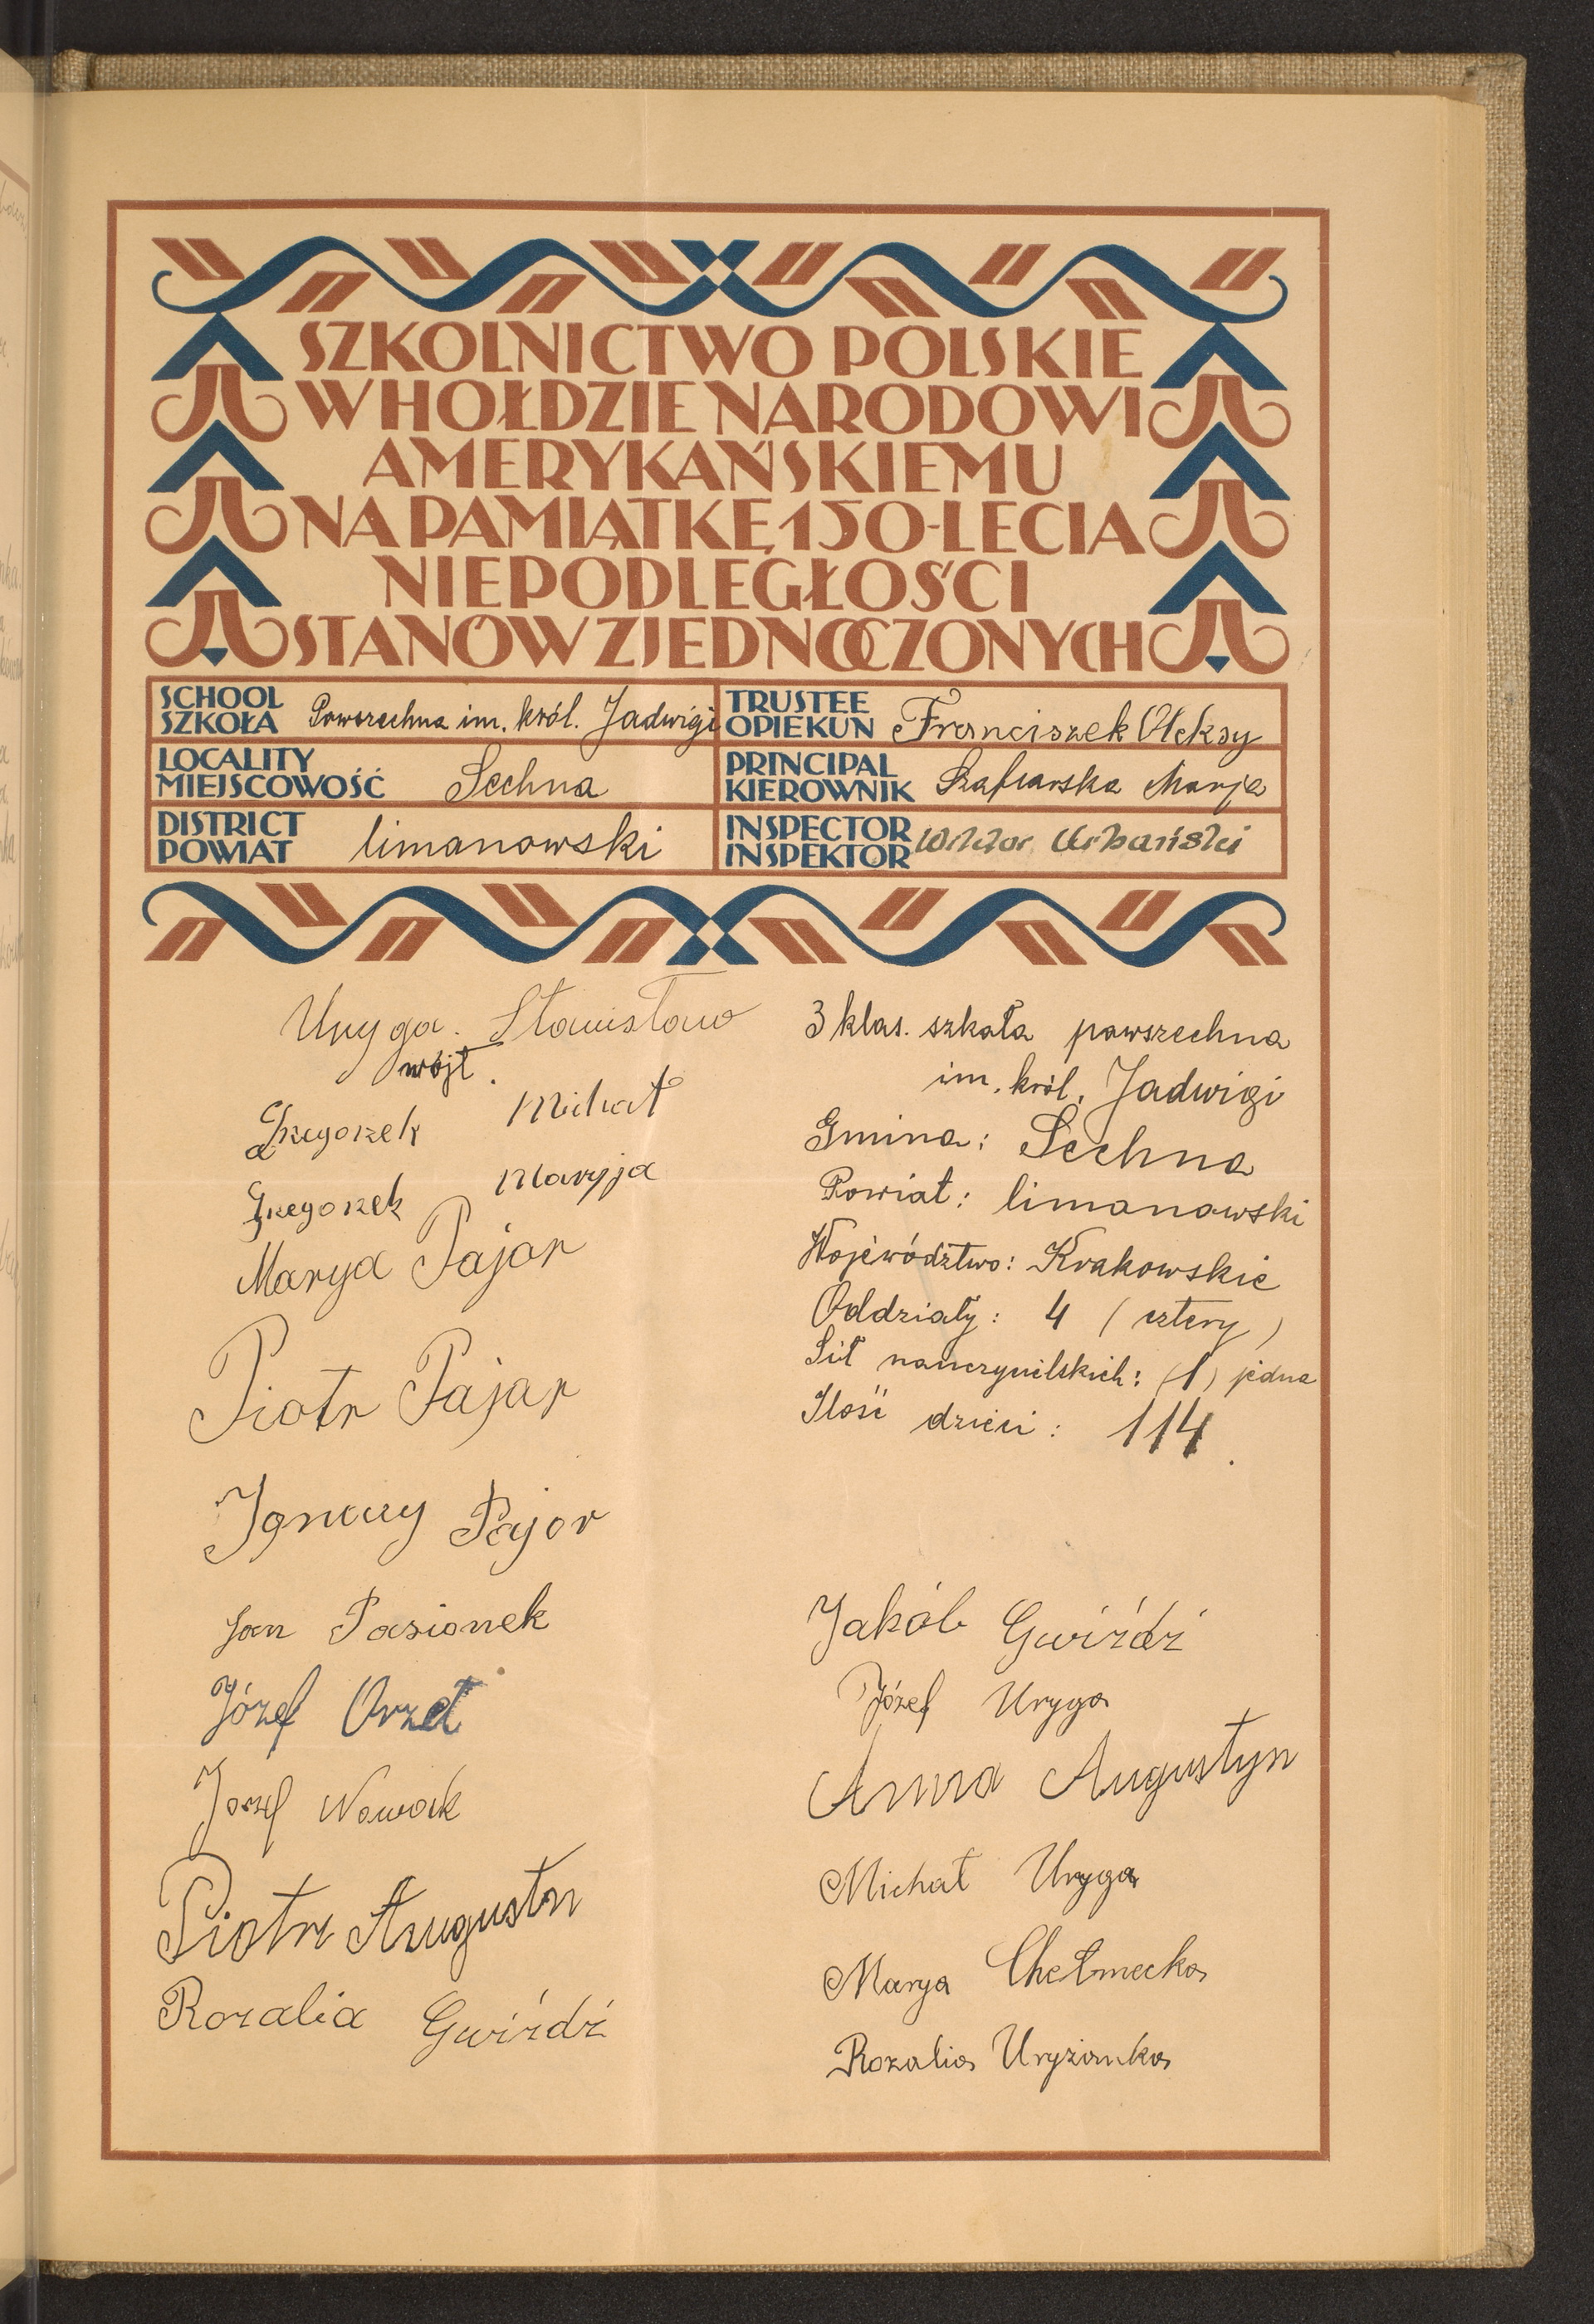 SZKOLNICTWO POLSKIE
W HOŁDZIE NARODOWI
AMERYKAŃSKIEMU
NA PAMIĄTKĘ 150-LECIA
NIEPODLEGŁOŚCI
STANÓW ZJEDNOCZONYCH
SCHOOL
SZKOŁA Powszechna im. król. Jadwigi
TRUSTEE
OPIEKUN Franciszek Oleksy
LOCALITY
MIEJSCOWOŚĆ Sechna
PRINCIPAL
KIEROWNIK Szaflarska Marja
DISTRICT
POWIAT limanowski
INSPECTOR
INSPEKTOR Wiktor Urbański
Uryga. Stanisław
wójt.
Grzegorzek Michał
Grzegorzek Maryja
Marya Pajor
Piotr Pajar
Ignacy Pajor
Jan Pasionek
Józef Orzeł
Jozef Nowak
Piotr Augustn
Rozalia Gwiźdź
3 klas. szkoła powszechna
im. król. Jadwigi
Gmina: Sechna
Powiat: limanowski
Województwo: Krakowskie
Oddziały: 4 (cztery)
Sił nauczycielskich: (1) jedna
Ilość dzieci: 114.
Jakób Gwiźdź
Józef Uryga
Anna Augustyn
Michał Uryga
Marya Chełmecka
Rozalia Uryżanka